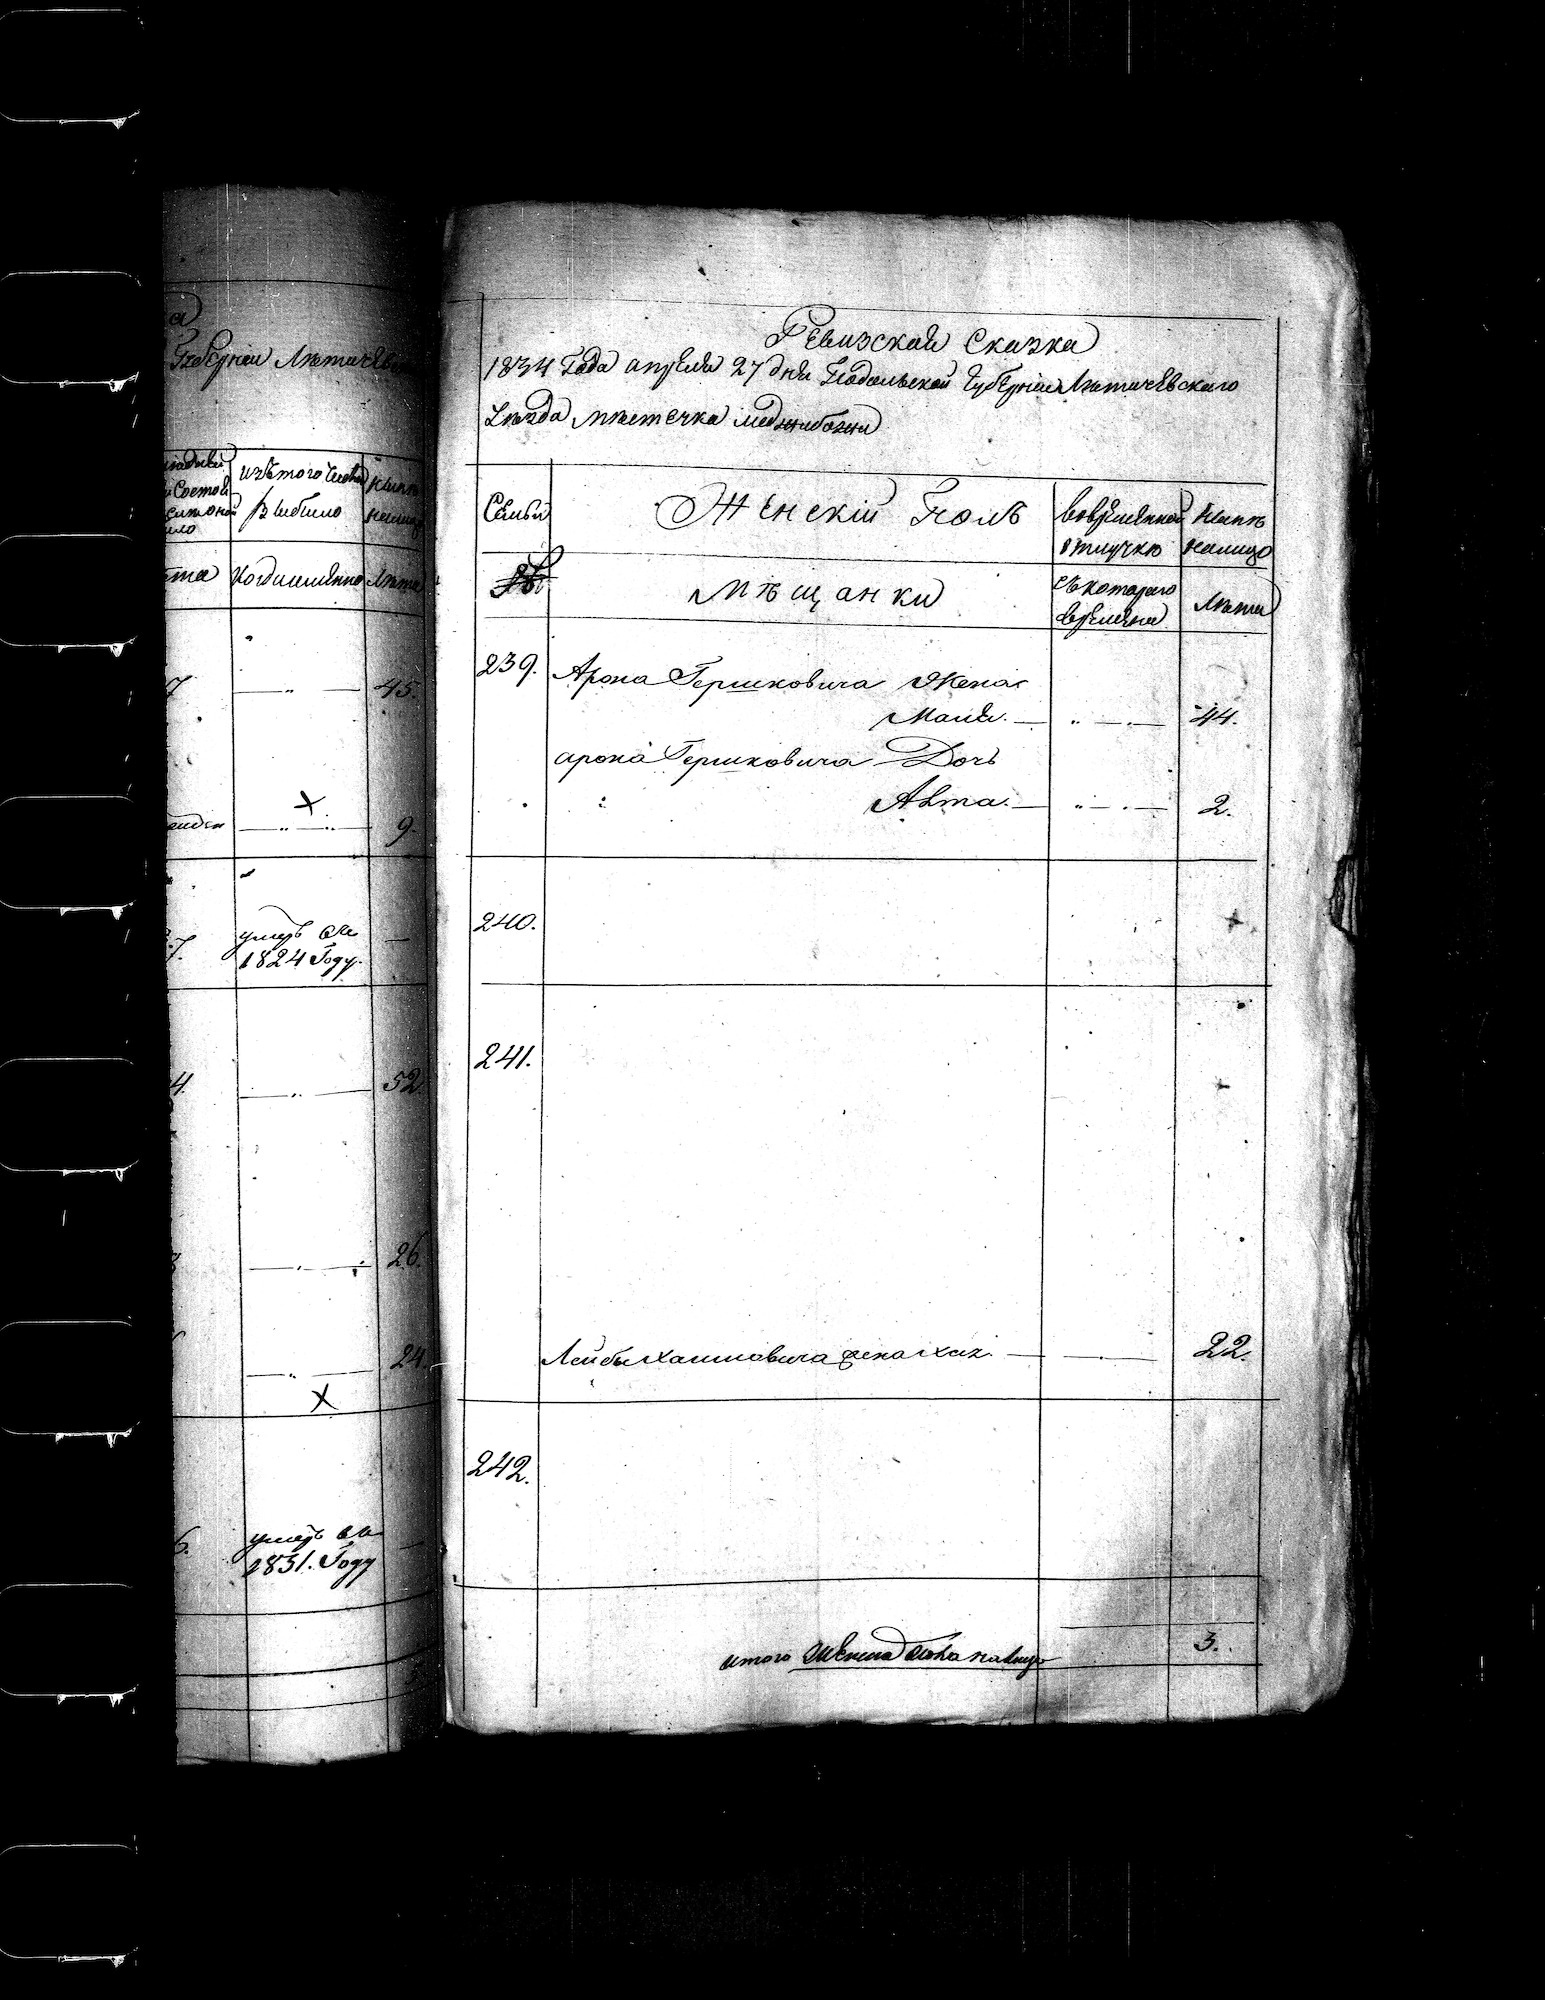 Губерніи Летичевс
изъ того числа
выбыло
ныне
налицо
когда именно
лета
45.
9.
умеръ въ
1824 Году.
52
26.
24.
умеръ въ
1831. Году
Ревизская Сказка
1834 Года апреля 27 дня Подольской Губерніи Летичевскаго
Уезда местечка Меджибожи
Семьи
Женскій Полъ
вовременной
отлучке
ныне
налицо
№
Мещанки
съ котораго
времени
лета
239.
Арона Гершковича Жена
Маля.
44.
арона Гершковича Дочь
2.
240.
241.
Лейбы жена
22.
242.
итого Женска пола налицо
3.